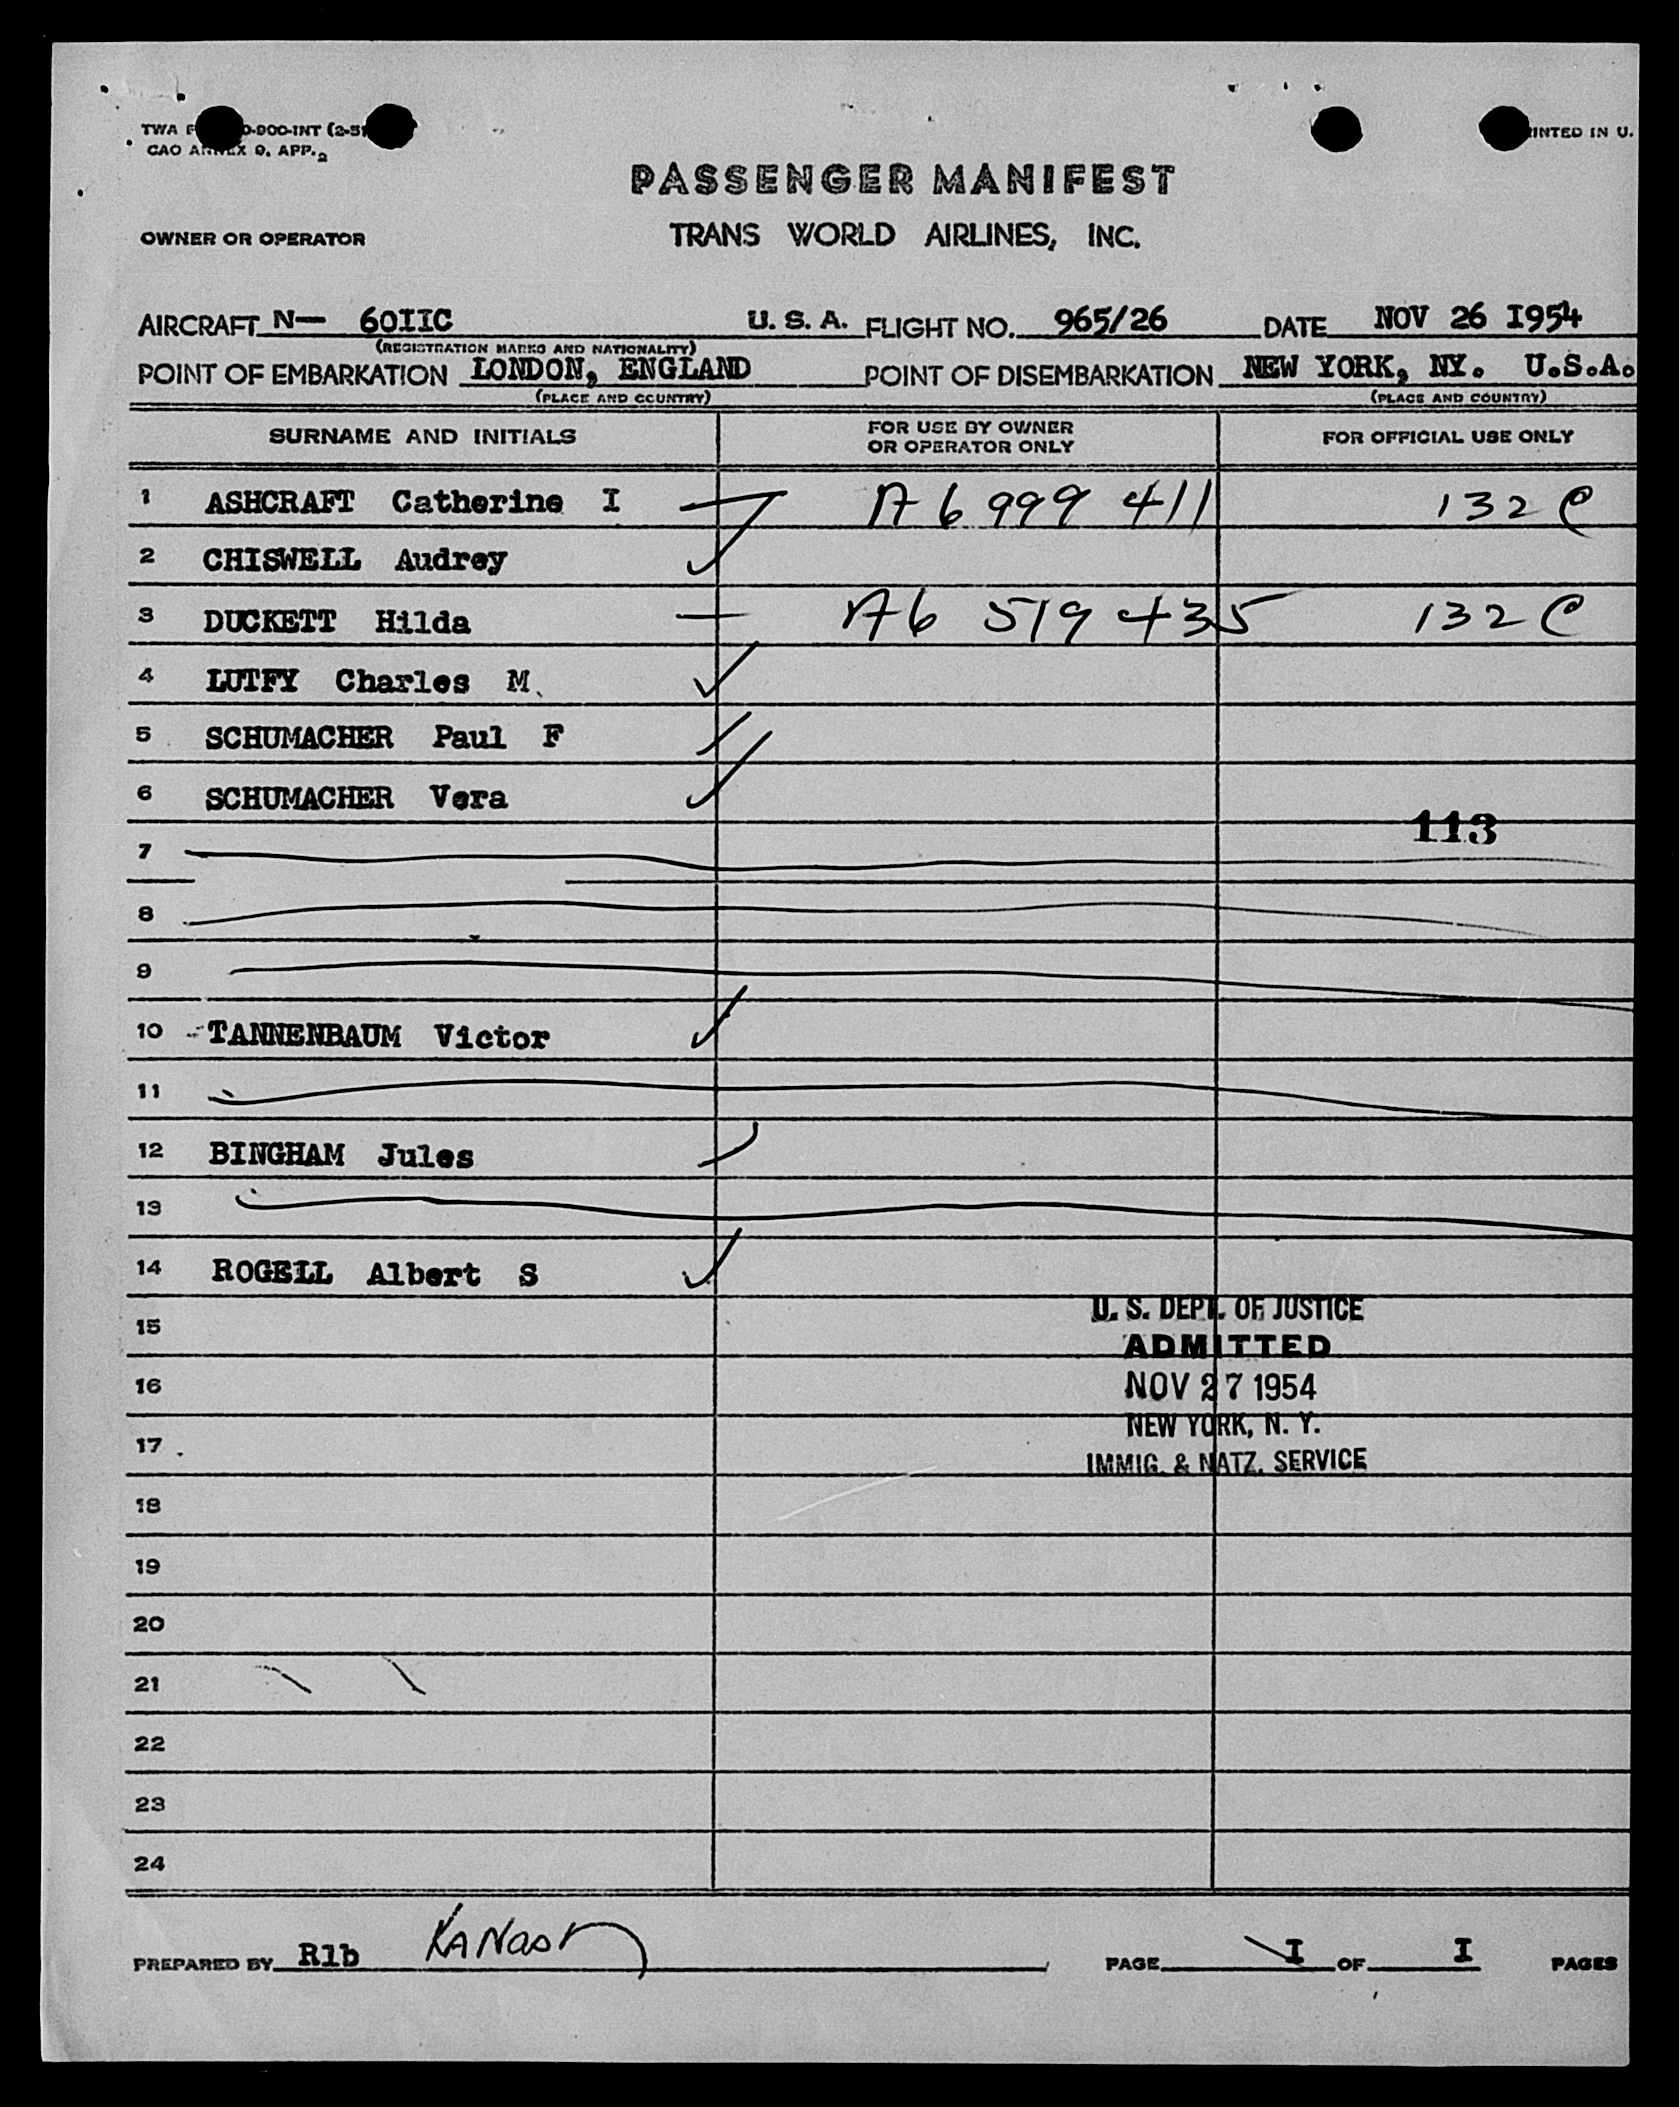 TWA 900-INT (2-5
CAO ANNEX 9, APP. 2
PRINTED IN U.
PASSENGER MANIFEST
OWNER OR OPERATOR TRANS WORLD AIRLINES, INC.
AIRCRAFT N— 60IIC U. S. A. FLIGHT NO. 965/26 DATE NOV 26 I954
(REGISTRATION MARKS AND NATIONALITY)
POINT OF EMBARKATION LONDON, ENGLAND POINT OF DISEMBARKATION NEW YORK, NY. U.S.A.
(PLACE AND COUNTRY) (PLACE AND COUNTRY)
SURNAME AND INITIALS FOR USE BY OWNER OR OPERATOR ONLY FOR OFFICIAL USE ONLY
1 ASHCRAFT Catherine I A6 999 411 132 C
2 CHISWELL Audrey
3 DUCKETT Hilda A6 519 435 132 C
4 LUTFY Charles M
5 SCHUMACHER Paul F
6 SCHUMACHER Vera
113
7
8
9
10 TANNENBAUM Victor
11
12 BINGHAM Jules
13
14 ROGELL Albert S
U. S. DEPT. OF JUSTICE
15
ADMITTED
16 NOV 27 1954
NEW YORK, N. Y.
17
IMMIG. & NATZ. SERVICE
18
19
20
21
22
23
24
PREPARED BY Rlb PAGE I OF I PAGES